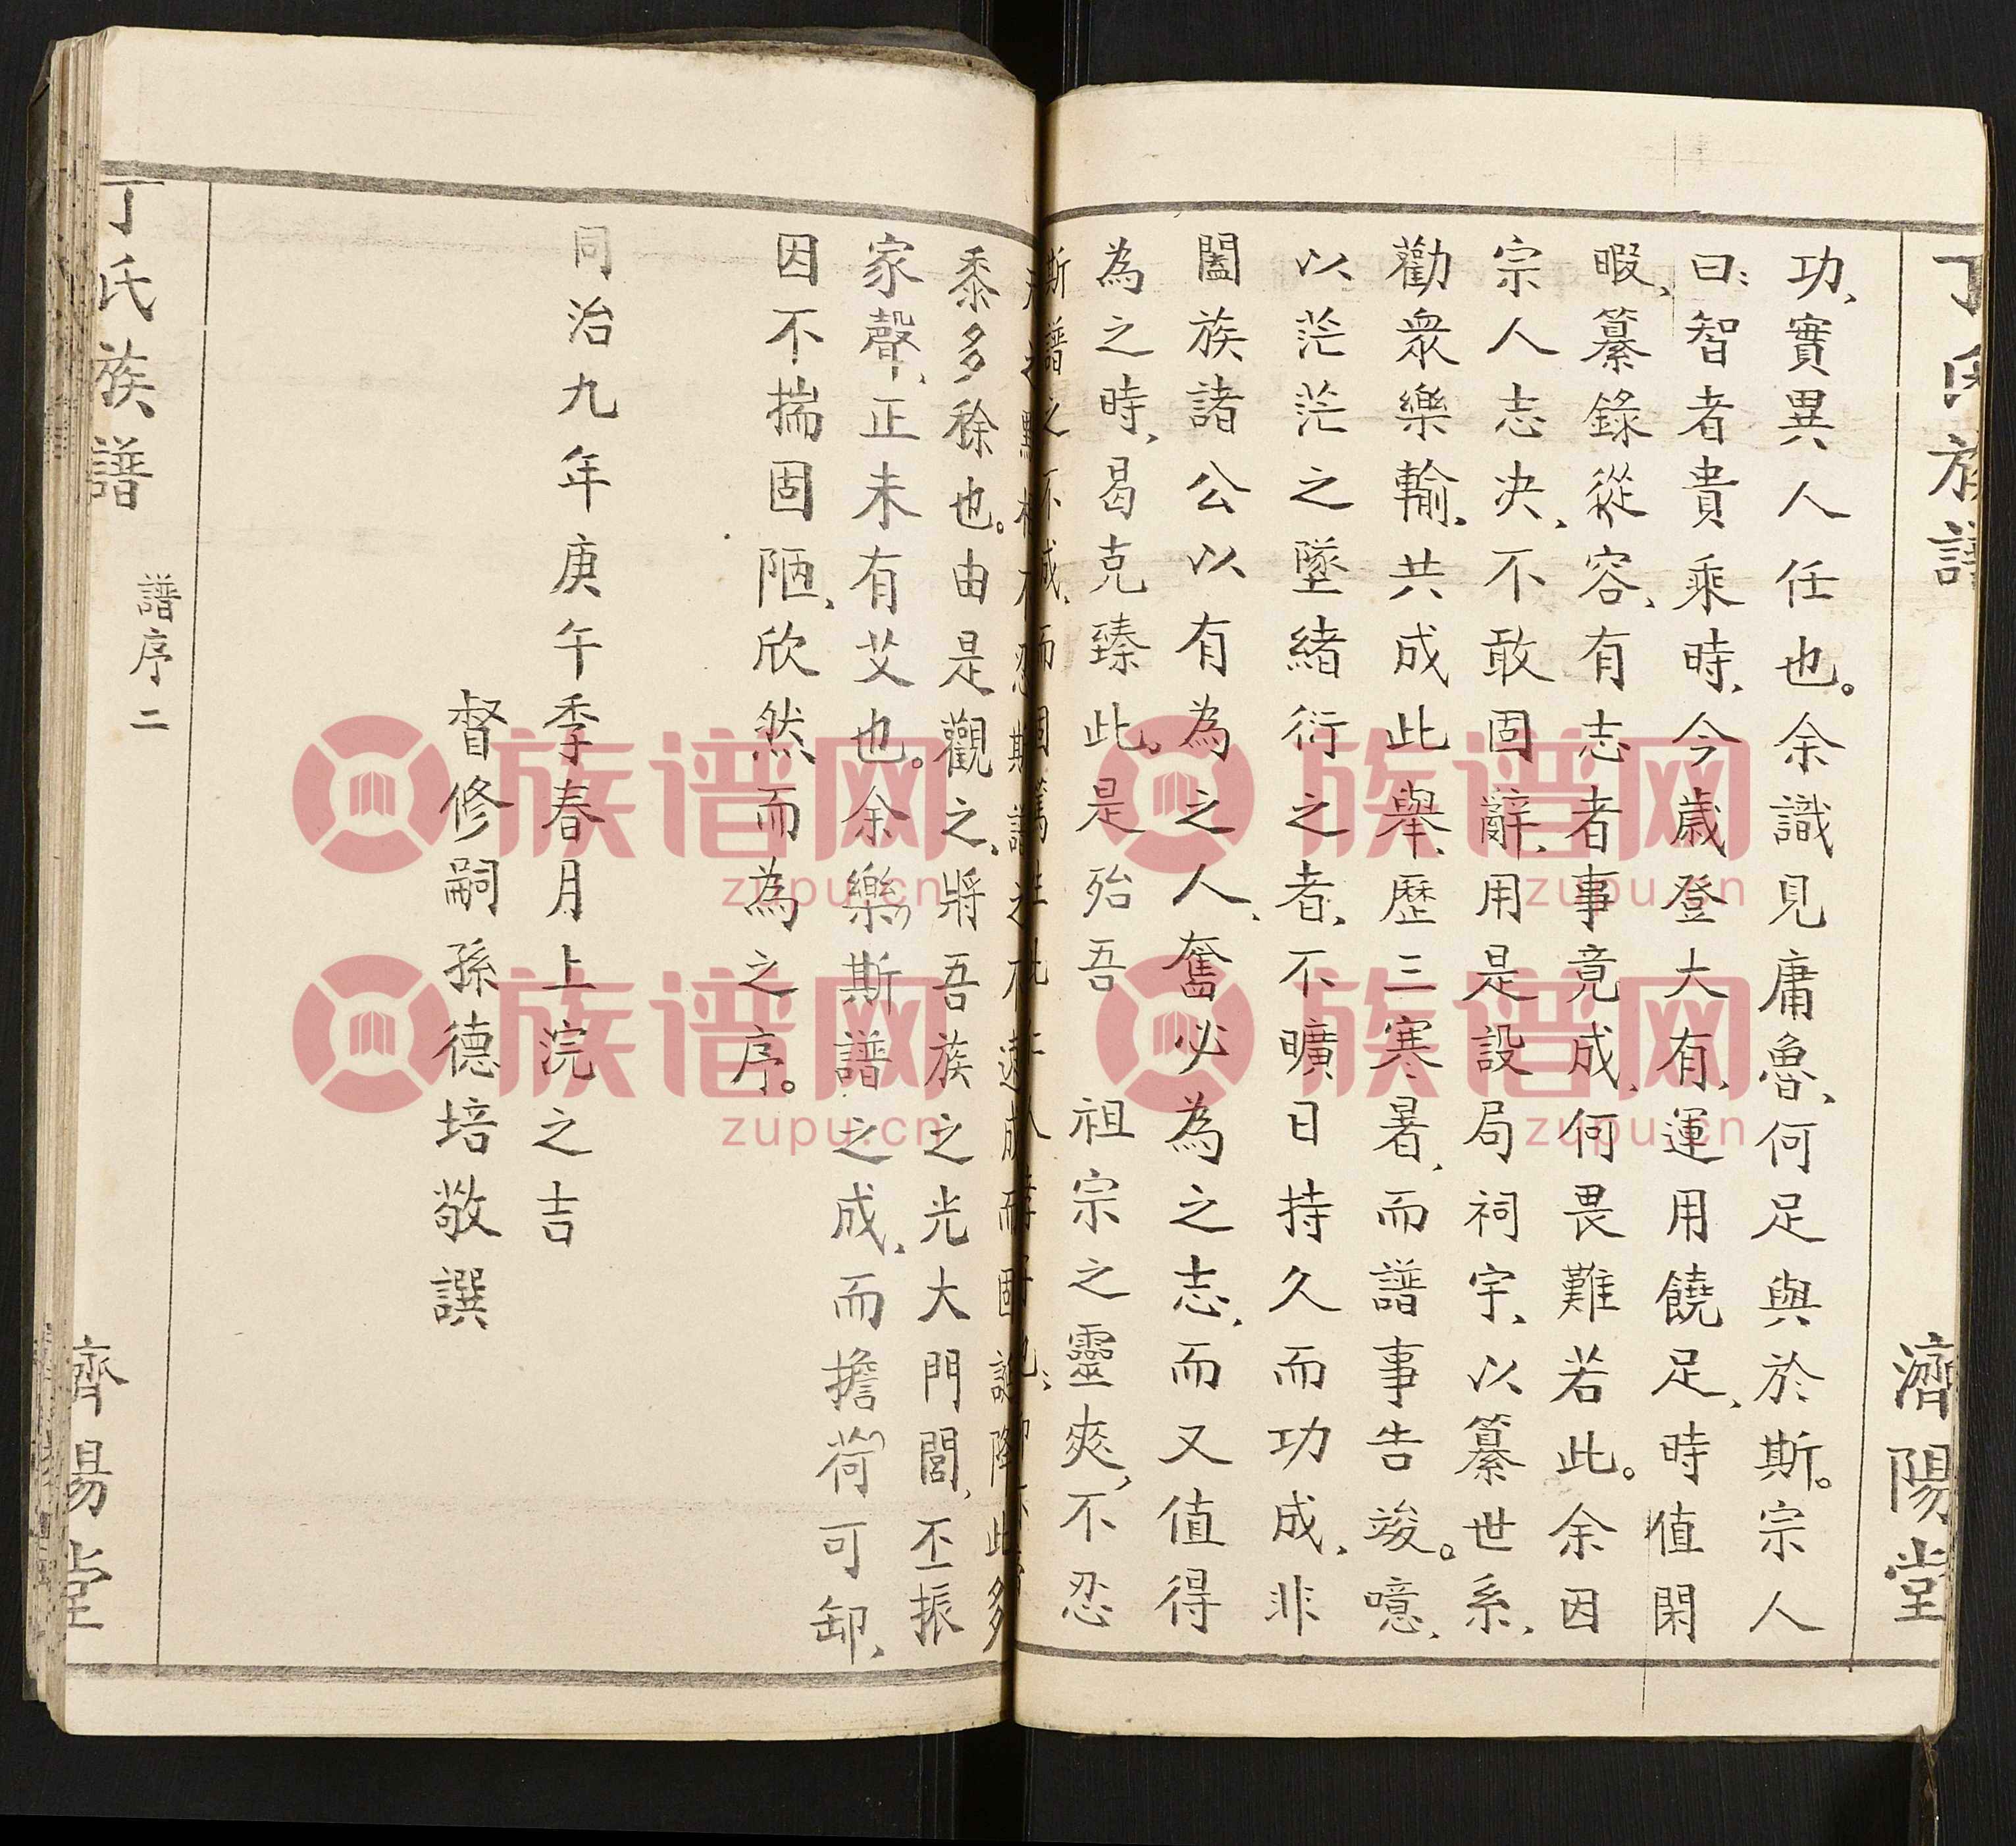 丁氏族譜
濟陽堂
功、實異人任也。余識見庸魯、何足與於斯。宗人
曰：智者貴乘時、今歲登大有、運用饒足、時值閑
暇、纂錄從容、有志者事竟成、何畏難若此。余因
宗人志決、不敢固辭、用是設局祠宇、以纂世系、
勸衆樂輸、共成此舉、歷三寒暑、而譜事告竣。噫、
以茫茫之墜緒衍之者、不曠日持久而功成、非
闔族諸公以有為之人、奮必為之志、而又值得
為之時、曷克臻此。是殆吾 祖宗之靈爽、不忍
斯譜之不成、而
黍多稌也。由是觀之、將吾族之光大門閭、丕振
家聲、正未有艾也。余樂斯譜之成、而擔荷可卸、
因不揣固陋、欣然而為之序。
同治九年庚午季春月上浣之吉
督修嗣孫德培敬譔
丁氏族譜
譜序二
濟陽堂
族谱网
zupu.cn
族谱网
zupu.cn
族谱网
zupu.cn
族谱网
zupu.cn